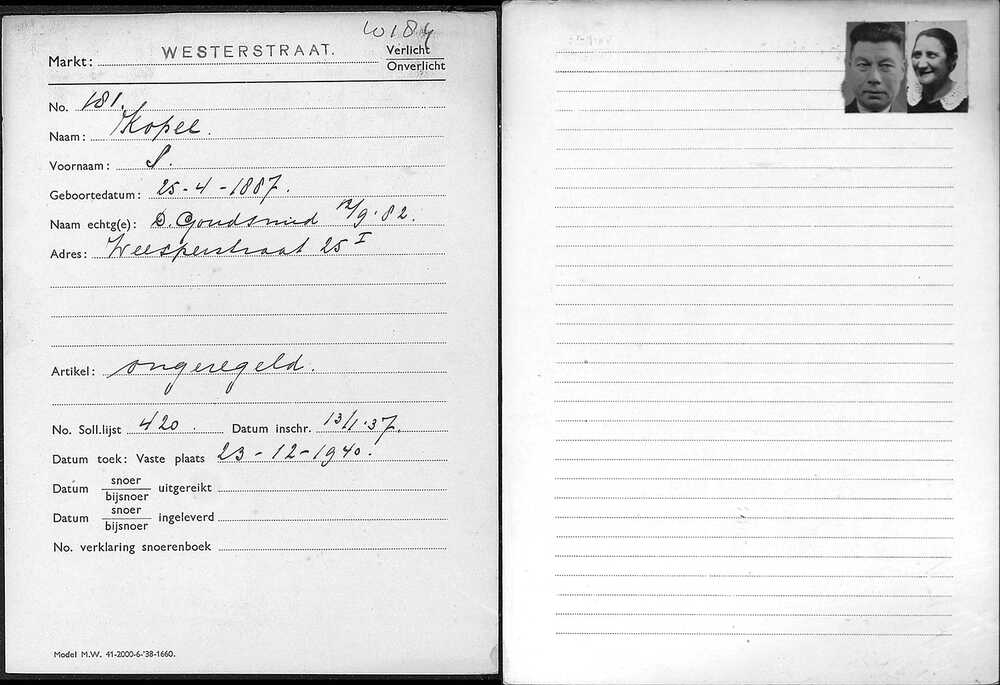 W 184
Markt: WESTERSTRAAT. Verlicht
Onverlicht
No. 181.
Naam: Kopel.
Voornaam: S.
Geboortedatum: 25-4-1887.
Naam echtg(e): D. Goudsmid 12/9.82.
Adres: Weesperstraat 25 I
Artikel: ongeregeld.
No. Soll.lijst 420. Datum inschr. 13/1.37.
Datum toek: Vaste plaats 23-12-1940.
Datum snoer uitgereikt
bijsnoer
Datum snoer ingeleverd
bijsnoer
No. verklaring snoerenboek
Model M.W. 41-2000-6-'38-1660.